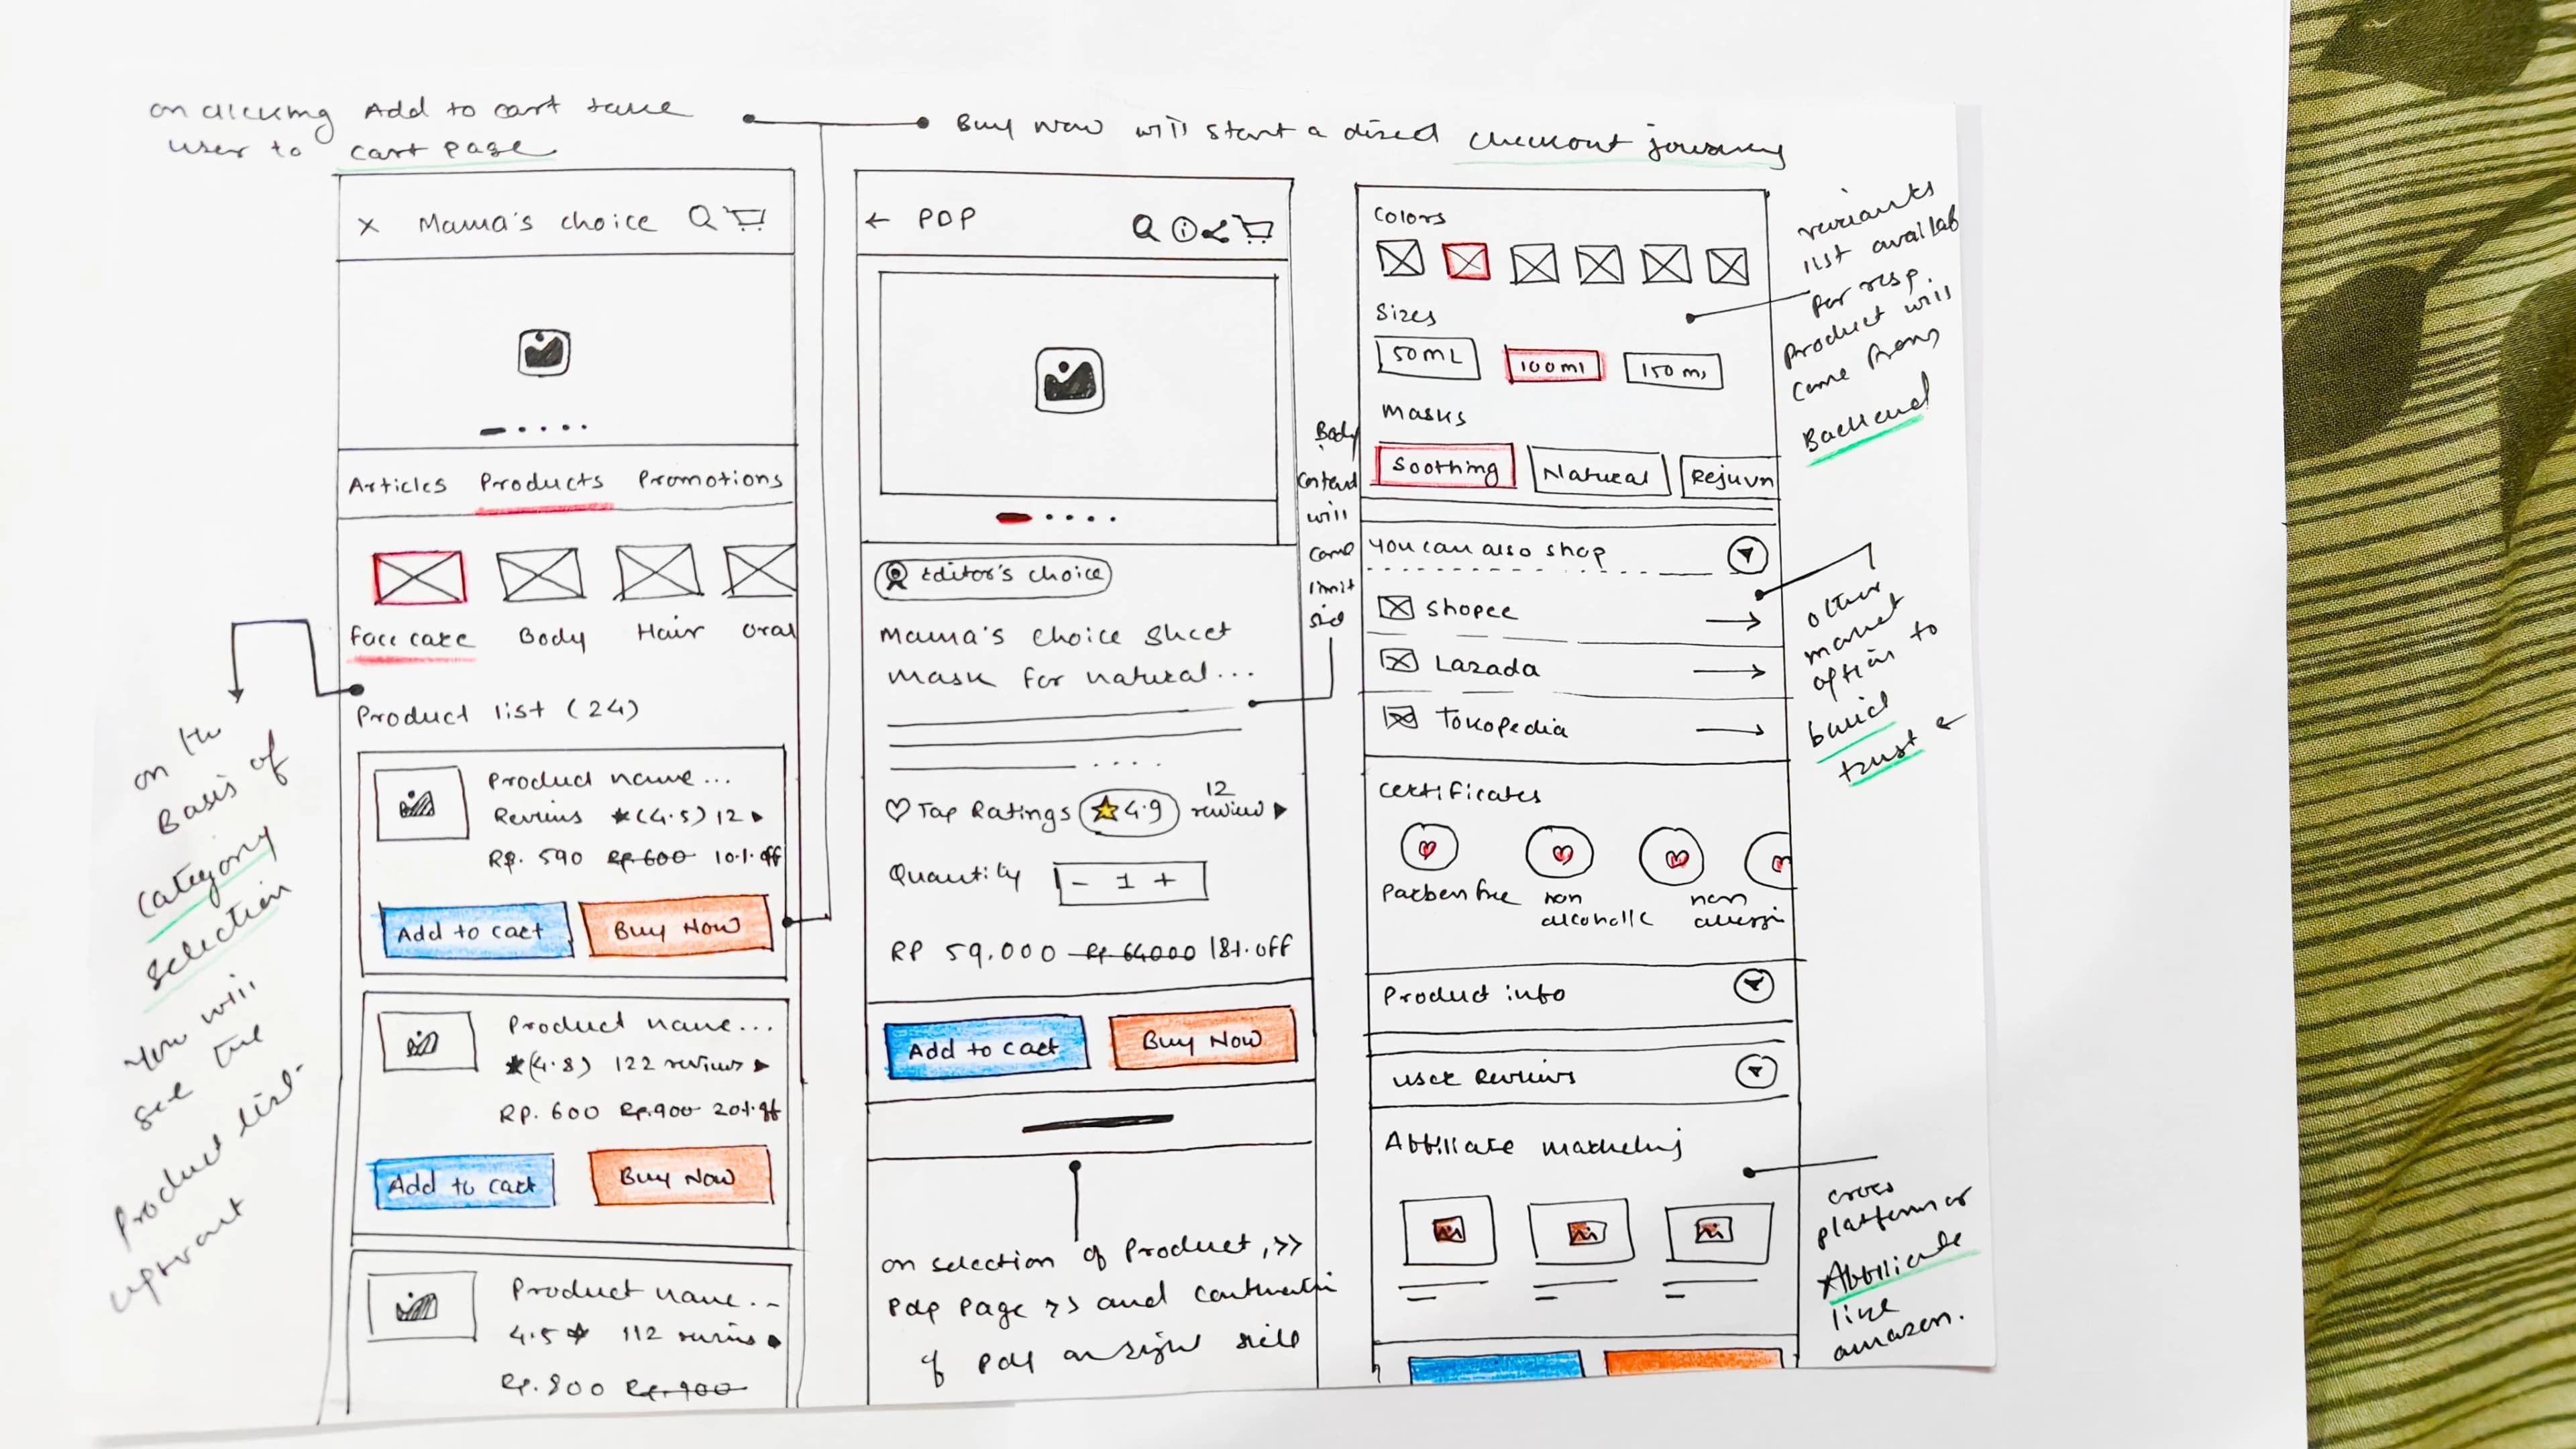 on clicking Add to cart take
user to cart page
Buy Now will start a direct checkout journey
X Mama's choice
Articles Products Promotions
Face care Body Hair Oral
Product list (24)
Product name...
Reviews ★(4.5) 12 ▶
RP. 590 Rp 600 10% off
Add to cart Buy Now
Product name...
★(4.8) 122 reviews ▶
RP. 600 Rp.900 20% off
Add to cart Buy Now
Product name...
4.5★ 112 reviews ▶
Rp. 800 Rp. 900
on the
Basis of
category
selection
you will
see the
Product list.
← PDP
Editor's choice
Mama's choice sheet
mask for natural...
♡ Tap Ratings ★4.9 12 review ▶
Quantity - 1 +
RP 59,000 Rp 64000 18% off
Add to cart Buy Now
on selection of Product, >>
Pdp Page >> and
of pdp
Body
content
will
come
limit
Colors
Sizes
50mL 100ml 150m
Masks
Soothing Natural Rejuvn
You can also shop
Shopee →
Lazada →
Tokopedia →
Certificates
Parben free non
alcoholic
non
Product info
User Reviews
Affiliate marketing
variants
list availab
per resp.
product will
come from
Backend
other
market
option to
build
trust ←
cross
platform or
Affiliate
like
amazon.